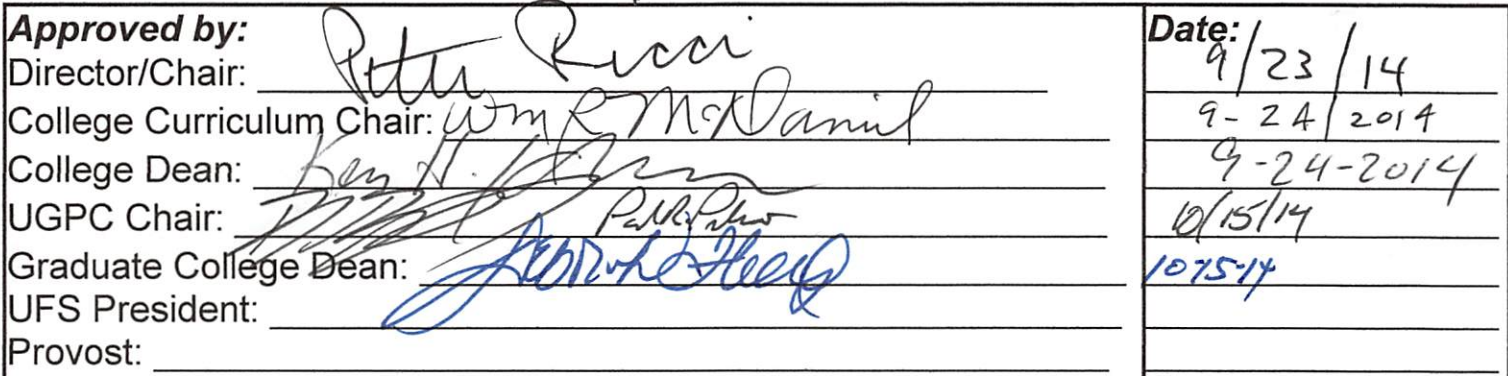 Approved by: Date:
Director/Chair: Peter Ricci 9/23/14
College Curriculum Chair: Wm R McDaniel 9-24/2014
College Dean: Ken H. 9-24-2014
UGPC Chair: 10/15/14
Graduate College Dean: 10-15-14
UFS President:
Provost: